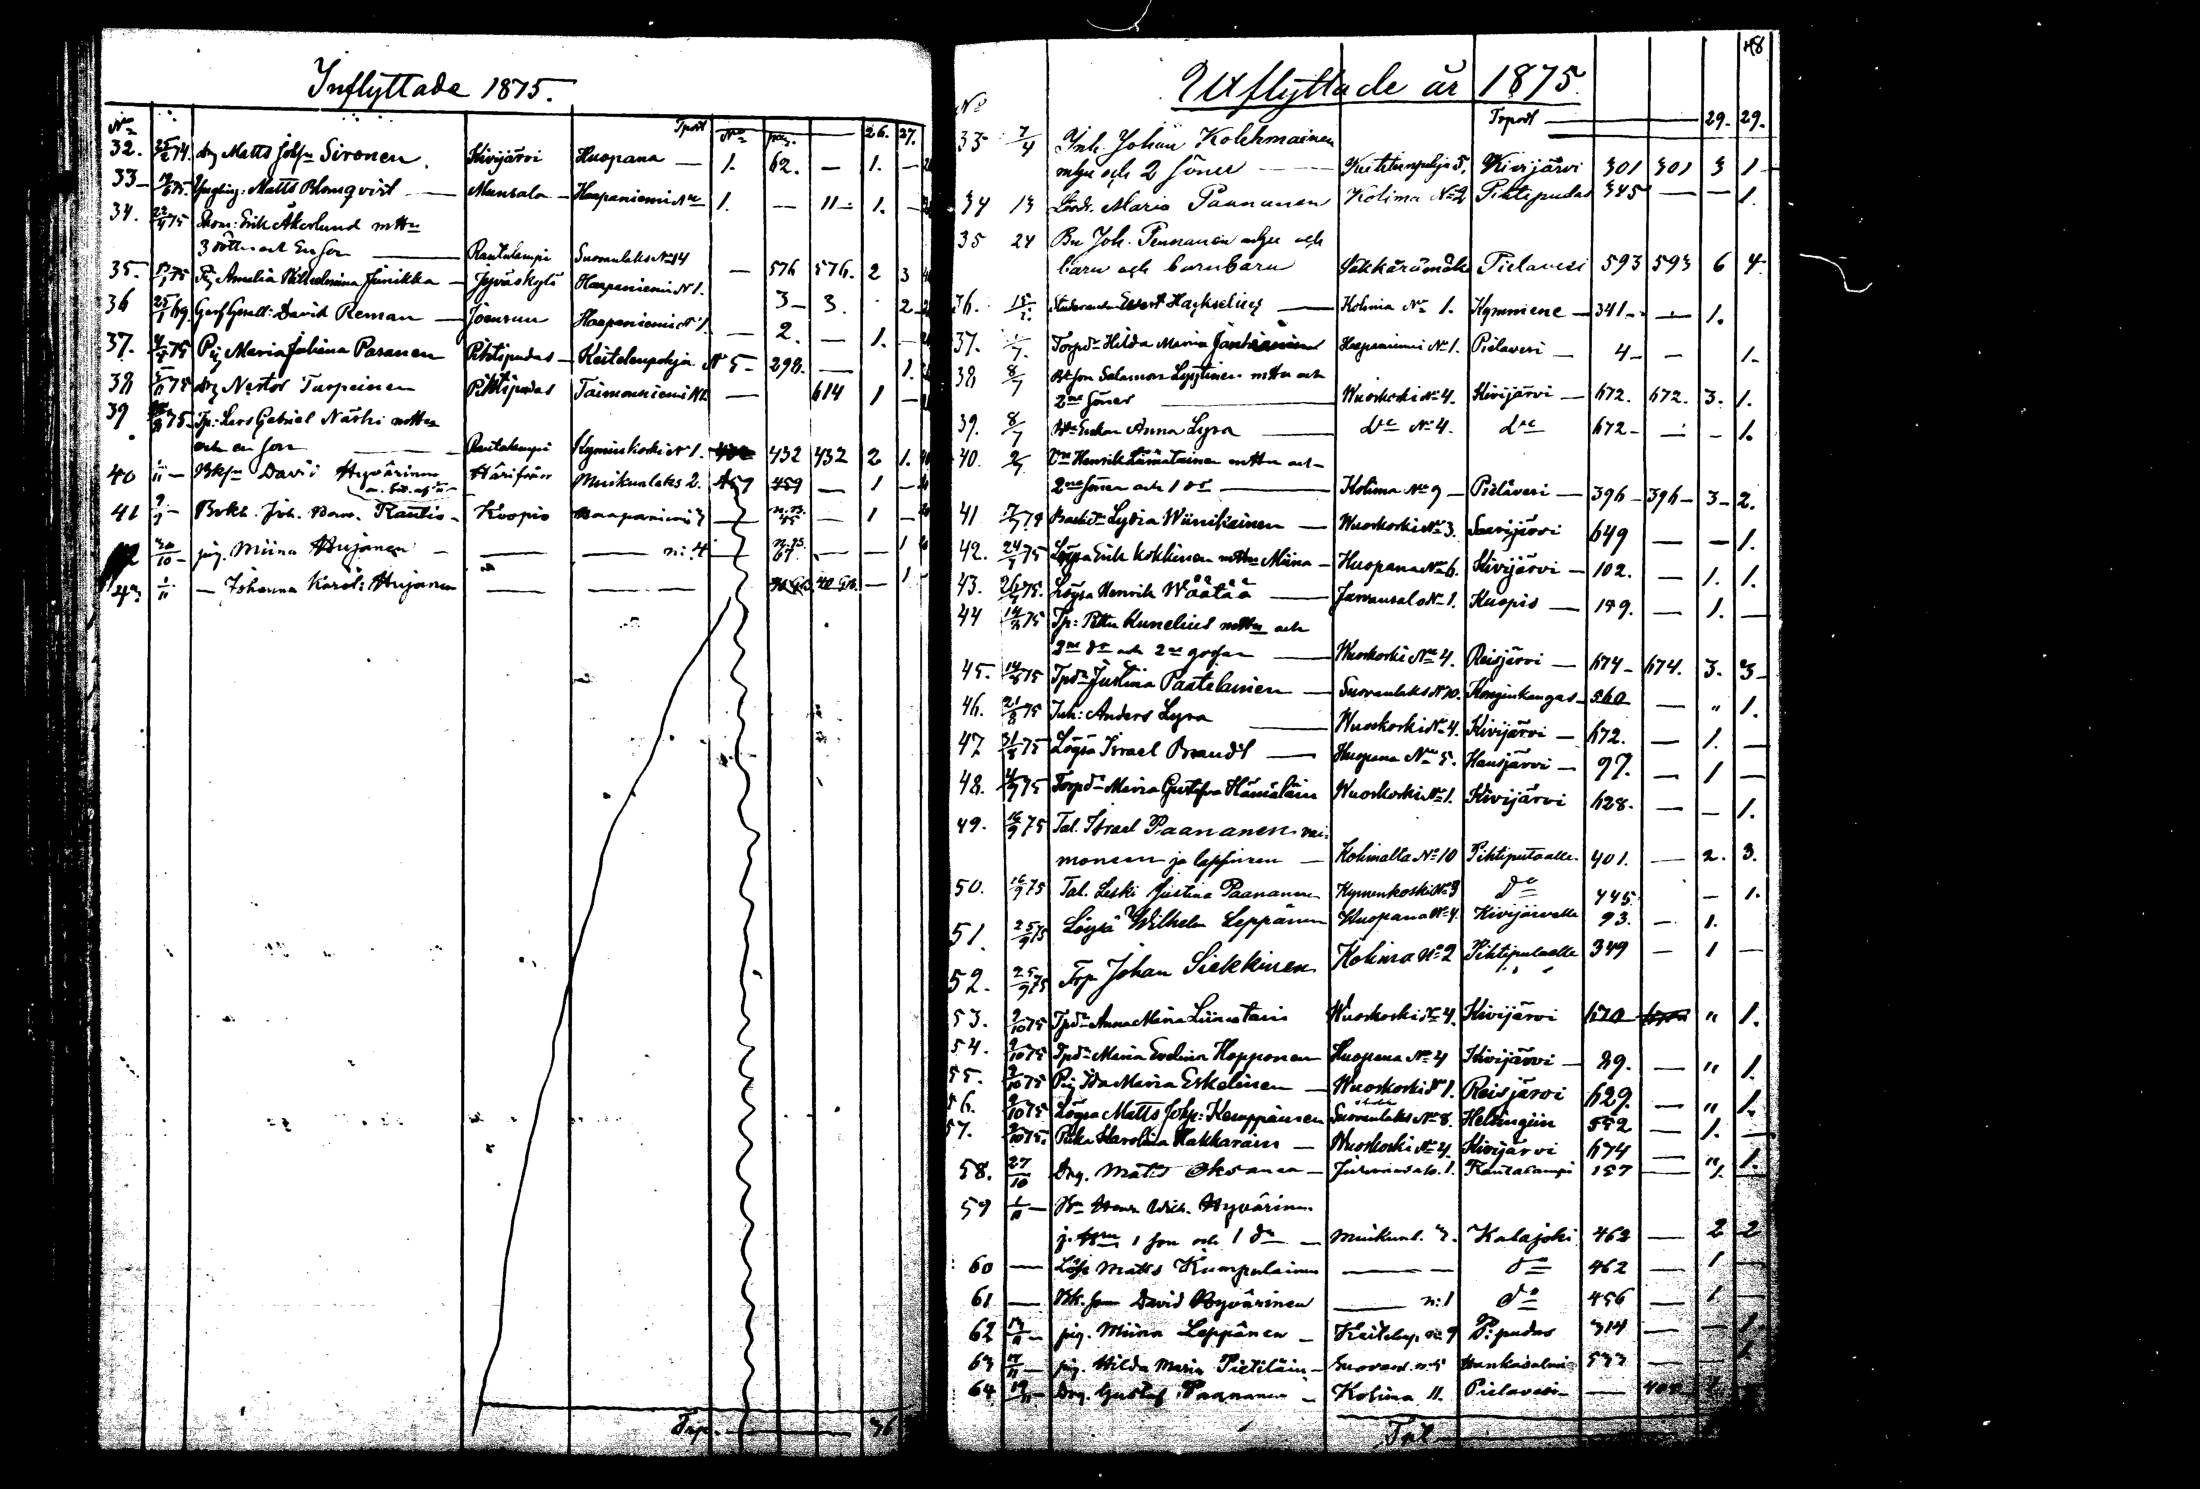 Inflyttade 1875.
No Tpost No pag. — 26. 27.
32. 25/2 74. drg Matts Johsn Sironen. Kivijärvi Huopana — 1. 62. — 1. —
33 — 75. Yngling: Matts Blomqvist — Munsala — Haapaniemi No 1. — 11 — 1. —
34. 75 Erik Åkerlund m Hu
3 döttr och En son — Rautalampi Suovanlaks No 14 — 576 576. 2 3
35. 75 Pig Amalia Wilhelmina Jänikka — Jyväskylä Haapaniemi N 1. 3 — 3. 2
36 25/1 69. Garf Gesäll: David Reman — Joensuu Haapaniemi No 1 — 2. — 1. —
37. 75 Pig Maria Juliana Paranen Pihtipudas — Keitelenpohja No 5 — 298. — 1.
38 75 drg Nestor Turpeinen Pihtipudas Taimoniemi — 614 1 —
39 75. Tp: Lars Gabriel Närhi m Hu
och en son — Rautalampi Kyminkoski No 1. 432 432 2 1.
40 11 — Bksn David Hyvärinen Härifrån Muikunlaks 2. 459 459 — 1 —
41 — Bokh. Joh. Rautio — Kuopio Haapaniemi 3 — 45 — 1 —
42 30/10 — pig. Miina Hujanen — — n: 4 — 67 — — 1
43 1/11 — Johanna Karol: Hujanen — — — 1
Trp. — 36
48
Utflyttade år 1875.
No Trpost — 29. 29.
33 7/4 Inh Johan Kolehmainen
m hu och 2 söner — Keitelenpohja 5. Kivijärvi 301 301 3 1
34 13 Maria Paananen Kolima No 2 Pihtipudas 345 — — 1.
35 24 Bn Joh. Pennanen m hu och
barn och barnbarn Säkkärämäki Pielavesi 593 593 6 4.
36. Studeranden Evert Hackselius — Kolima No 1. Kymmene — 341 — — 1.
37. Torpdr Hilda Maria Jäntiäinen Haapaniemi No 1. Pielavesi — 4 — — 1.
38 8/7 Salamon Lyytinen m Hu och
2ne söner — Wuoskoski No 4. Kivijärvi — 672. 672. 3. 1.
39. 8/7 Enkan Anna Lyra — do No 4. do 672 — — — 1.
40. Bn Henrik Lämatainen m Hu och
2ne söner och 1 dr — Kolima No 9 — Pielavesi — 396 — 396 — 3 — 2.
41 Lydia Wiinikainen — Wuoskoski No 3. Saarijärvi 649 — — 1.
42. 24/7 75 Löysä Erik Kokkinen m Hu Miina — Huopana No 6. Kivijärvi — 102. — 1. 1.
43. 26/7 75. Löysä Henrik Wäätää — Jurvansalo No 1. Kuopio — 159. — 1. —
44 14/8 75 Tp: Petter Kunelius m Hu och
2ne dr och 2ne gossar — Wuoskoski No 4. Reisjärvi — 674 — 674. 3. 3 —
45. 14/8 75 Tpdr Justina Paatelainen — Suovanlaks N 10. Konginkangas — 560 — " 1.
46. 21/8 75 Inh: Anders Lyra — Wuoskoski No 4. Kivijärvi — 672. — 1. —
47 31/8 75 Löysä Israel Brandt — Huopana No 5. Hausjärvi — 97. — 1 —
48. 4/9 75 Torpdr Maria Gustafva Hämäläin Wuoskoski No 1. Kivijärvi 628. — — 1.
49. 16/9 75 Tal. Israel Paananen vai-
monsen ja lapsinsen — Kolimalta No 10 Pihtiputaalle. 401. — 2. 3.
50. 16/9 75 Tal. Leski Justina Paananen Kymenkoski No 3 do 445 — 1.
51. 25/9 75 Löysä Wilhelm Leppänen Huopana No 4. Kivijärvelle 93. — 1.
52. 25/9 75 Trp Johan Siekkinen Kolima No 2 Pihtiputaalle 349 — 1 —
53. 2/10 75 Tpdr Anna Maria Liimatain Wuoskoski No 4. Kivijärvi 670 " 1.
54. 2/10 75 Tpdr Maria Evelina Hopponen Huopana No 4 Kivijärvi — 89. — " 1.
55. 2/10 75 Pig Ida Maria Eskelinen — Wuoskoski N 1. Reisjärvi 629. — " 1.
56. 2/10 75 Löysä Matts Johs: Kemppainen Suovanlaks No 8. Helsingiin 552 — 1. —
57. 2/10 75. Piika Karolina Kakkarain — Wuoskoski No 4. Kivijärvi 674 — " 1.
58. 27/10 Drg. Matts Oksanen — Jurvansalo. 1. Rautalampi 157 — 1. —
59 1/11 — Bn Henr. Wilh. Hyvärinen
j. Hu 1 son och 1 dr — Muikunl. 3. Kalajoki 462 — 2 2
60 — Lös Matts Kumpulainen — — do 462 — 1 —
61 — Bk. son David Hyvärinen — n: 1 do 456 — 1 —
62 — pig. Miina Leppänen — Keitelep. No 9 P: pudas 314 — — 1
63 — pig. Hilda Maria Pietiläin — Suovanl. n: 5 Hankasalmi 533 — — 1
64 — Drg. Gustaf Paananen — Kolima 11. Pielavesi — —
Trpt —